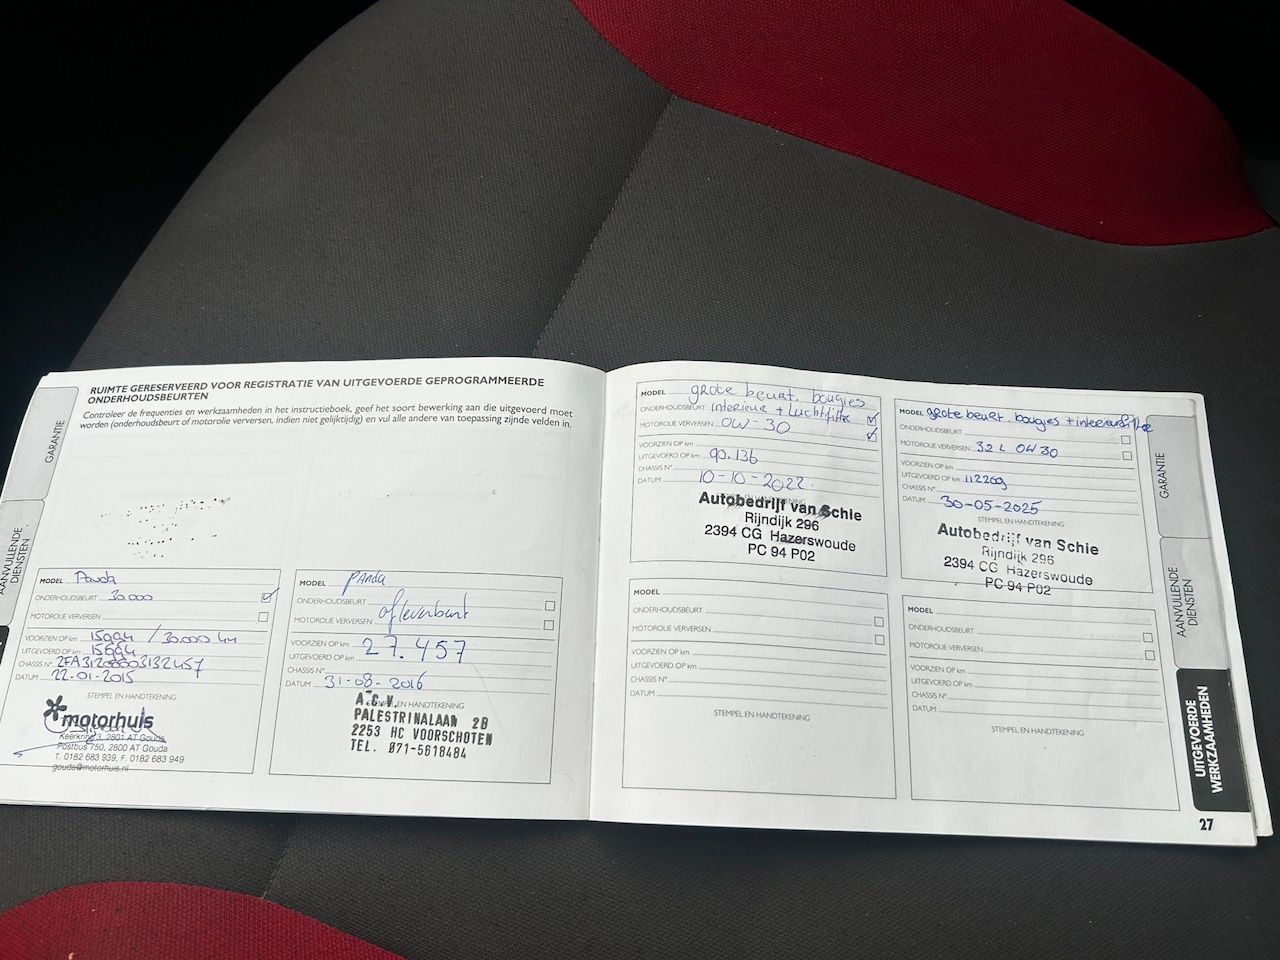 RUIMTE GERESERVEERD VOOR REGISTRATIE VAN UITGEVOERDE GEPROGRAMMEERDE
ONDERHOUDSBEURTEN
Controleer de frequenties en werkzaamheden in het instructieboek, geef het soort bewerking aan die uitgevoerd moet
worden (onderhoudsbeurt of motorolie verversen, indien niet gelijktijdig) en vul alle andere van toepassing zijnde velden in.
GARANTIE
AANVULLENDE
DIENSTEN
MODEL Panda
ONDERHOUDSBEURT 30.000
MOTOROLIE VERVERSEN
VOORZIEN OP km 15994 / 30.000 km
UITGEVOERD OP km 15664
CHASSIS N°
DATUM 22-01-2015
STEMPEL EN HANDTEKENING
motorhuis
Keerkring 3, 2801 AT Gouda
Postbus 750, 2800 AT Gouda
T. 0182 683 939, F. 0182 683 949
gouda@motorhuis.nl
MODEL PANda
ONDERHOUDSBEURT
afleverbeurt
MOTOROLIE VERVERSEN
VOORZIEN OP km 27.457
UITGEVOERD OP km
CHASSIS N°
DATUM 31-08-2016
STEMPEL EN HANDTEKENING
A.C.V.
PALESTRINALAAN 2B
2253 HC VOORSCHOTEN
TEL. 071-5618484
MODEL grote beurt. bougies
ONDERHOUDSBEURT interieur + Luchtfilter
MOTOROLIE VERVERSEN OW-30
VOORZIEN OP km
UITGEVOERD OP km 90.136
CHASSIS N°
DATUM 10-10-2022.
STEMPEL EN HANDTEKENING
Autobedrijf van Schie
Rijndijk 296
2394 CG Hazerswoude
PC 94 P02
MODEL grote beurt. bougies + interieurfilter
ONDERHOUDSBEURT
MOTOROLIE VERVERSEN 3.2 L OW30
VOORZIEN OP km
UITGEVOERD OP km 112209
CHASSIS N°
DATUM 30-05-2025
STEMPEL EN HANDTEKENING
Autobedrijf van Schie
Rijndijk 296
2394 CG Hazerswoude
PC 94 P02
MODEL
ONDERHOUDSBEURT
MOTOROLIE VERVERSEN
VOORZIEN OP km
UITGEVOERD OP km
CHASSIS N°
DATUM
STEMPEL EN HANDTEKENING
MODEL
ONDERHOUDSBEURT
MOTOROLIE VERVERSEN
VOORZIEN OP km
UITGEVOERD OP km
CHASSIS N°
DATUM
STEMPEL EN HANDTEKENING
GARANTIE
AANVULLENDE
DIENSTEN
UITGEVOERDE
WERKZAAMHEDEN
27